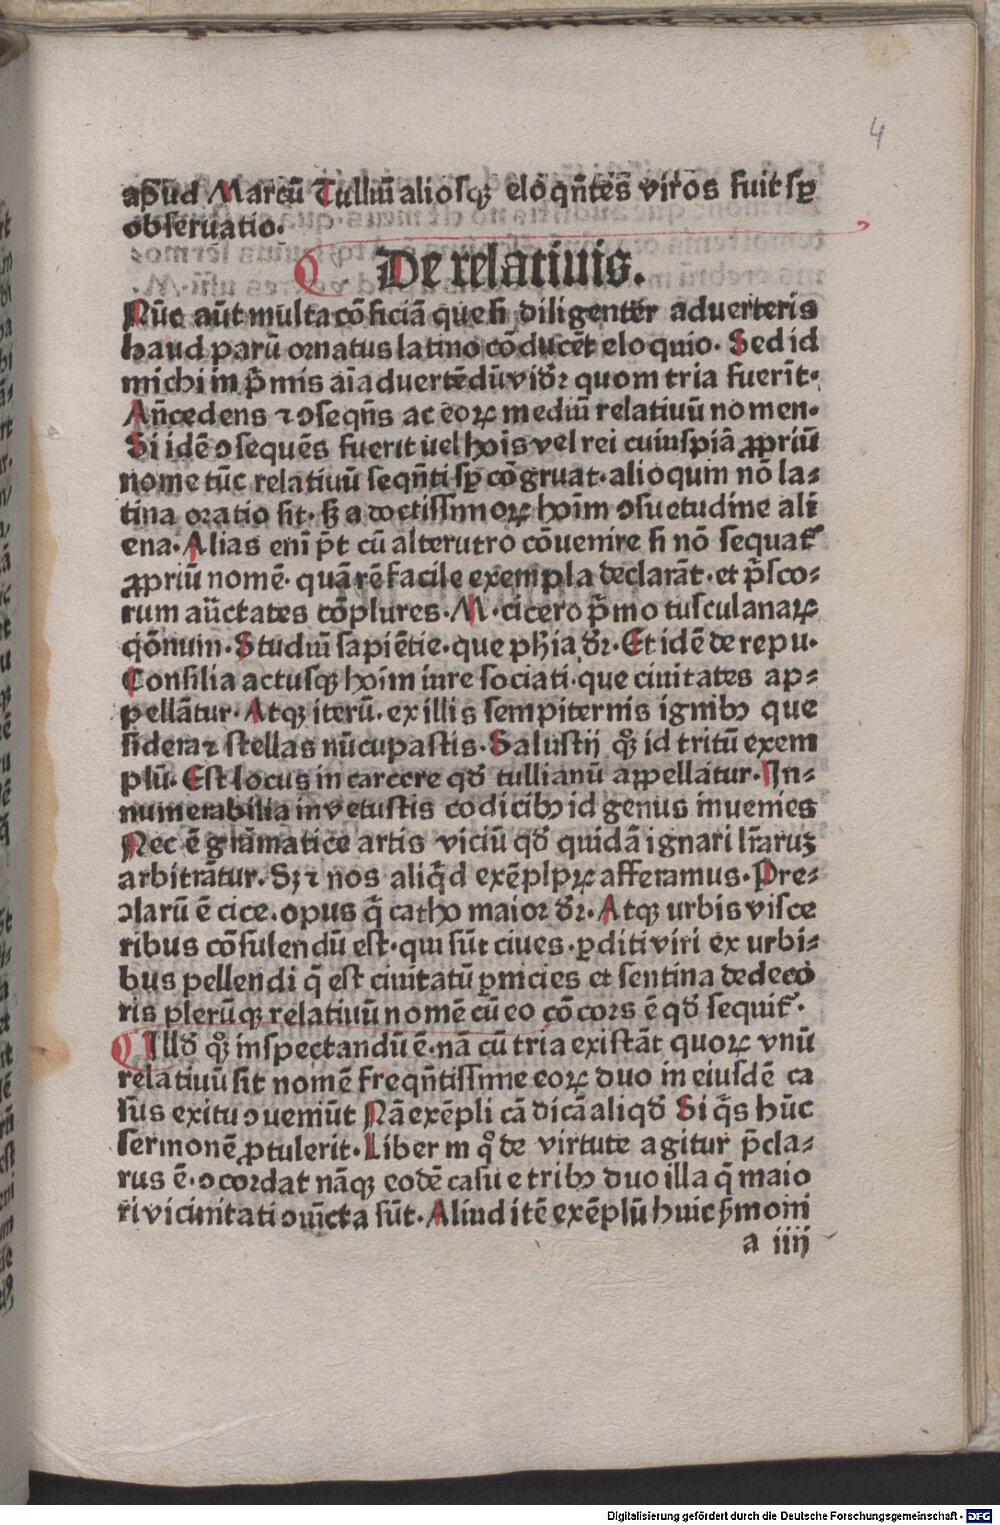 4
apud Marcū Tulliū aliosqꝫ eloqn̄tes viros fuit sꝑ
obseruatio.
De relatiuis.
Nūc aūt multa cōficiā que si diligenter aduerteris
haud parū ornatus latino cōducēt eloquio. Sed id
michi in p̄mis aīaduertēdū vidr̄ quom tria fuerīt.
An̄cedens ⁊ ↄseqn̄s ac eoꝝ mediū relatiuū nomen.
Si idē ↄsequēs fuerit uel hoīs vel rei cuiuspiā ꝓpriū
nome tūc relatiuū seqn̄ti sꝑ cōgruat. alioquin nō la⸗
tina oratio sit. sꝫ a doctissimoꝝ hoīm ↄsuetudine ali
ena. Alias enī pōt cū alterutro cōuenire si nō sequat᷑
ꝓpriū nomē. quā rē facile exempla declarāt. et p̄sco⸗
rum auctates cōplures. M. cicero p̄mo tusculanaꝝ
qōnum. Studiū sapiētie. que phīa dr̄. Et idē de repu.
Consilia actusqꝫ hoīm iure sociati. que ciuitates ap⸗
pellātur. Atqꝫ iterū. ex illis sempiternis ignibꝰ que
sidera ⁊ stellas nūcupastis. Salustij qꝫ id tritū exem
plū. Est locus in carcere qd̄ tullianū appellatur. In⸗
numerabilia in vetustis codicibꝰ id genus inuenies
Nec ē grāmatice artis viciū qd̄ quidā ignari lr̄aruꝫ
arbitrātur. Sꝫ ⁊ nos aliq̄d exēplꝑꝝ afferamus. Pre⸗
ↄlarū ē cice. opus q̄ catho maior dr̄. Atqꝫ urbis visce
ribus cōsulendū est. qui sūt ciues. ꝑditi viri ex urbi⸗
bus pellendi q̄ est ciuitatū ꝑnicies et sentina dedeco
ris plerūqꝫ relatiuū nomē cū eo cōcors ē qd̄ sequit᷑.
Illd̄ qꝫ inspectandū ē. nā cū tria existāt quoꝝ vnū
relatiuū sit nomē freqn̄tissime eoꝝ duo in eiusdē ca
sus exitu ↄueniūt Nā exēpli cā dicā aliqd̄ Si q̄s hūc
sermonē ꝓtulerit. Liber in qͦ de virtute agitur p̄cla⸗
rus ē. ↄcordat nāqꝫ eodē casu e tribꝰ duo illa q̄ maio
ri vicinitati ↄuīcta sūt. Aliud itē exēplū huic ẜmoni
a iiij
Digitalisierung gefördert durch die Deutsche Forschungsgemeinschaft - DFG